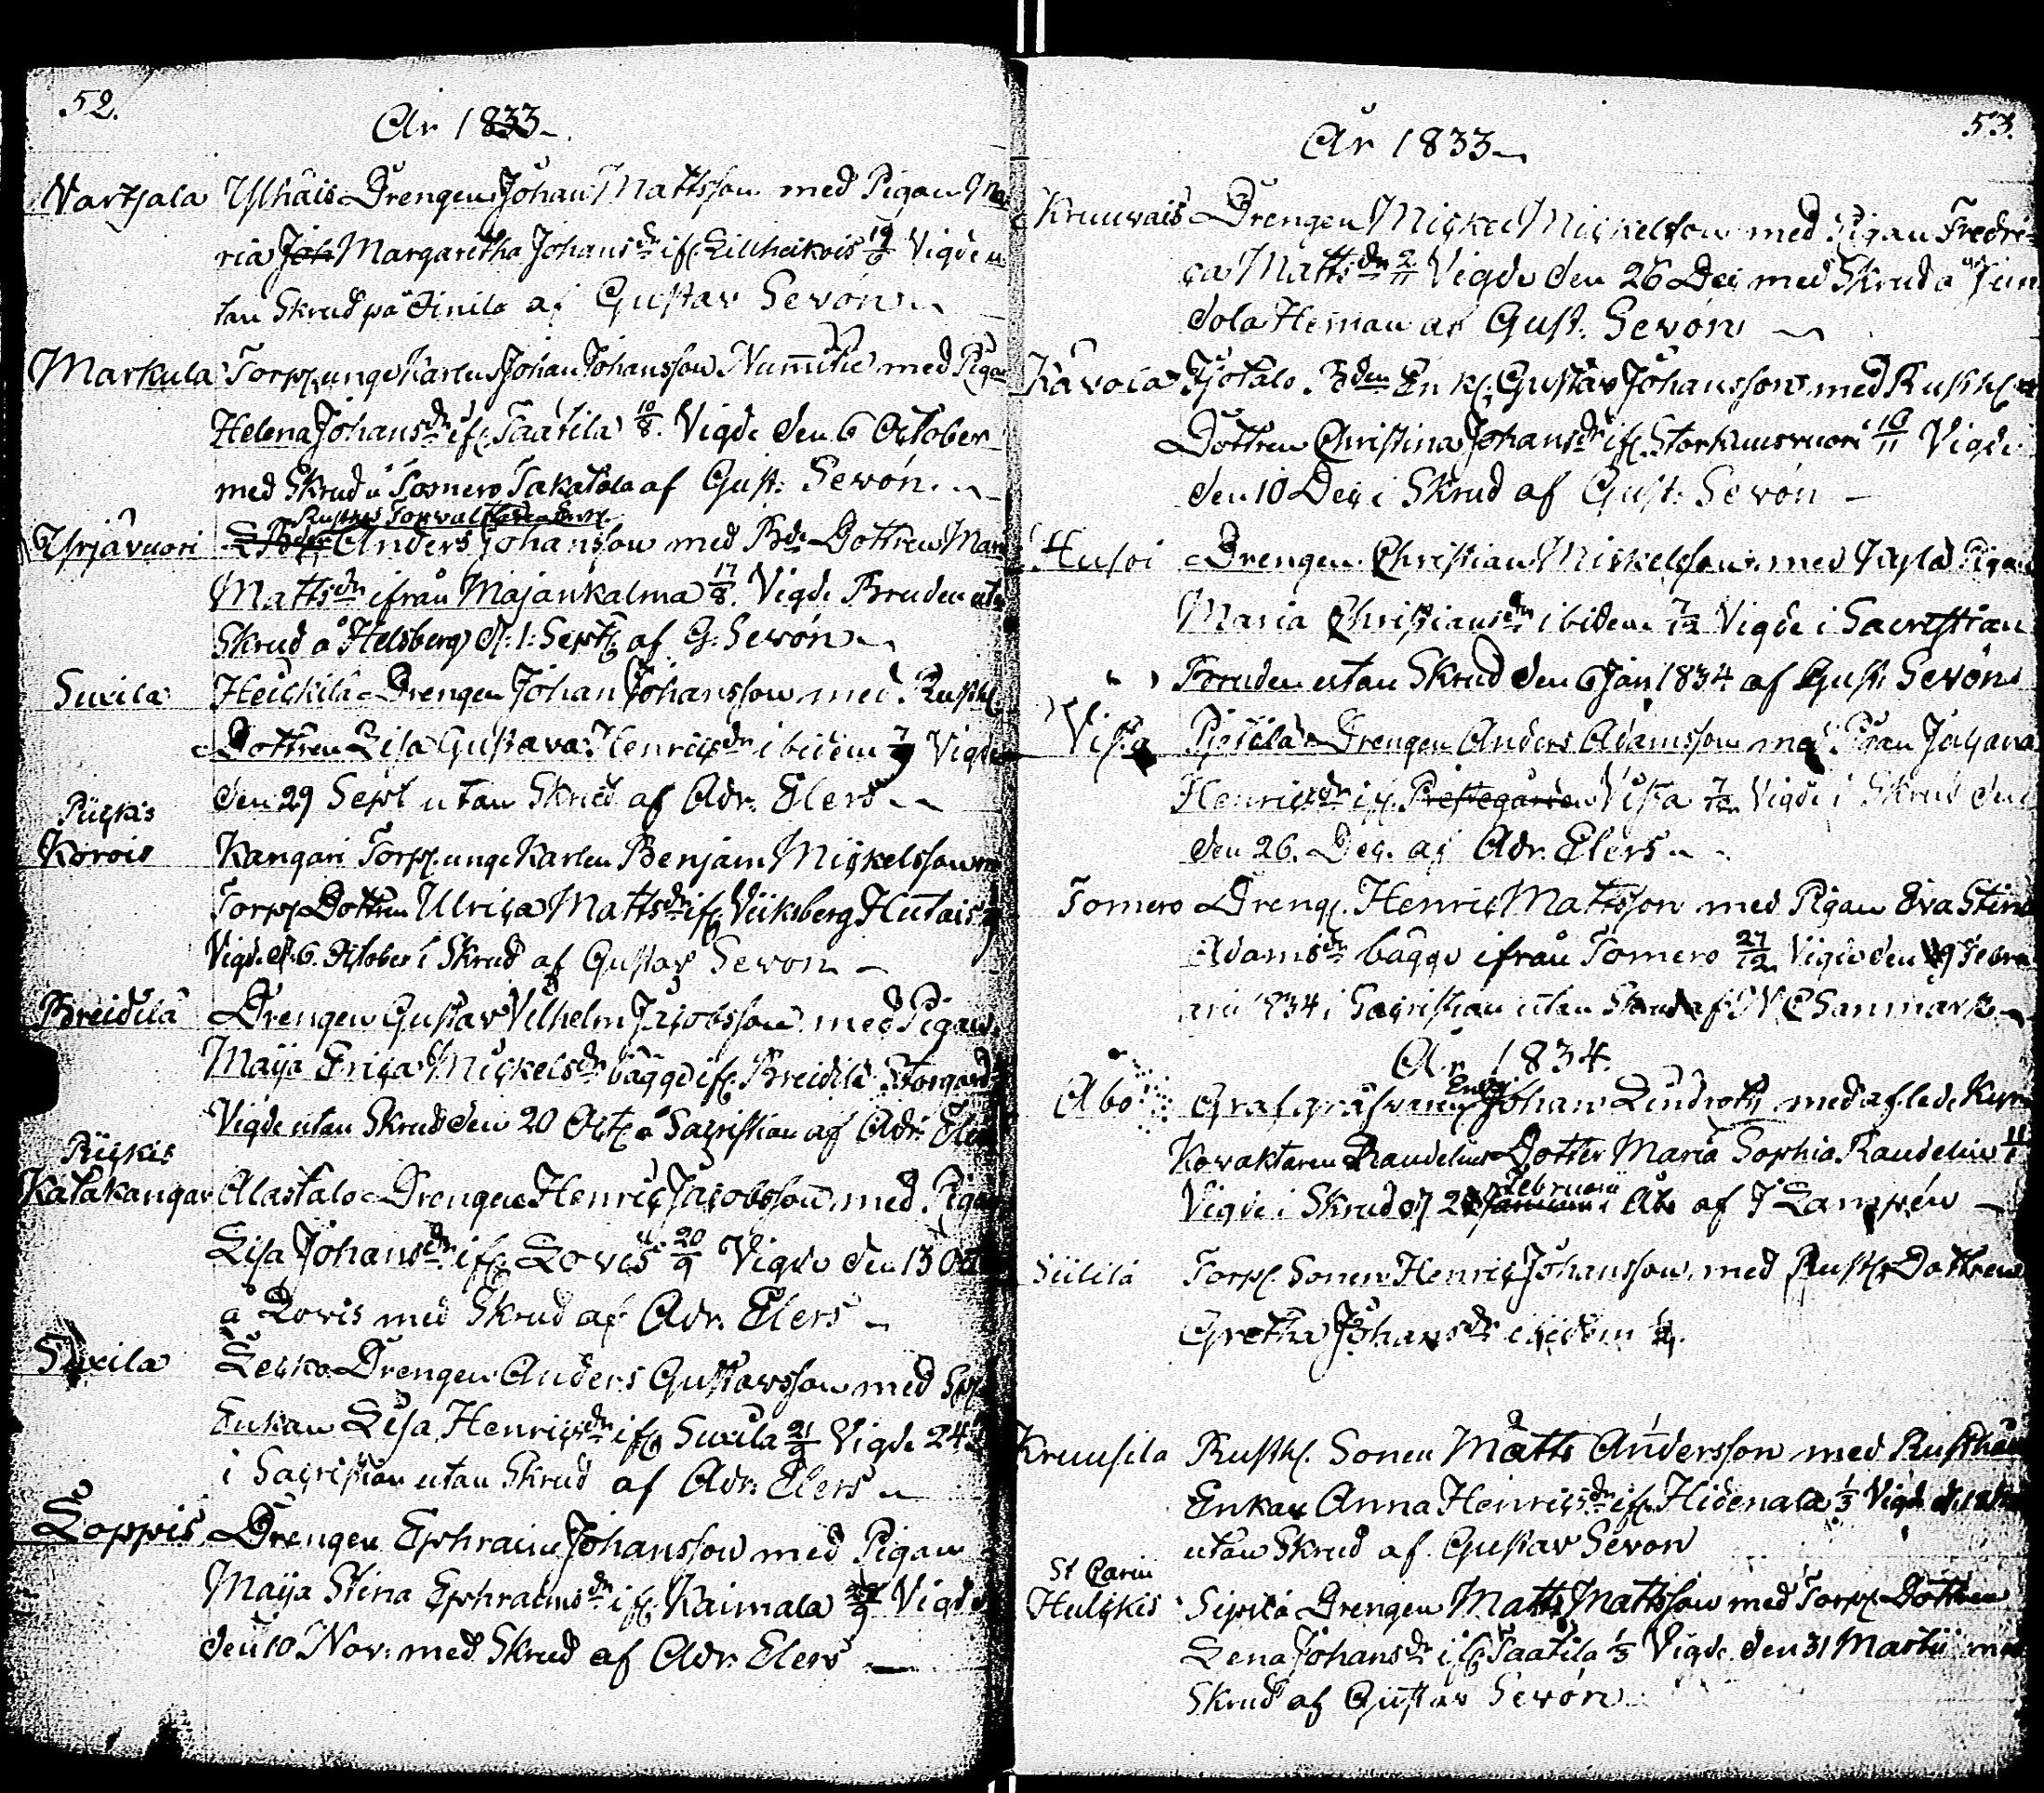 52.
År 1833
Vartsala Ylhäis Drengen Johan Mattsson med Pigan Ma
ria Joh Margaretha Johans dr ifr Lillheikois 19/8 Vigde u
tan Skrud på af Gustav Sevón
Markula Torp. unge Karlen Johan Johansson med Pigan
Helena Johans dr ifr Taatila 10/8. Vigde den 6 October
med Skrud å Tornero Takatalo af Gust: Sevón.
Yrjävuori Anders Johansson med Bde Dottren Mar
Matts dr ifrån Majankalma 17/8. Vigde Bruden utan
Skrud å Helsberg d. 1. Sept. af G. Sevón
Suxila Heickilä Drengen Johan Johansson med Rusth.
Dottren Lisa Gustava Henrics dr ibidem 7/9 Vigde
den 29 Sept utan Skrud af Adr. Elers
Piickis
Korois Kangari Torp. unge Karlen Benjam Mickelsson m
Torp Dottren Ulrica Matts dr ifr Viiksberg Hulais
Vigde d. 6. October i Skrud af Gustav Sevon
Breidilä Drengen Gustav Vilhelm Jacobsson med Pigan
Maija Erica Mickels dr bägge ifr. Breidilä Storgård
Vigde utan Skrud den 20 Oct. å Sacristian af Adr. Elers
Piickis
Katakangar Alastalo Drengen Henric Jacobsson med Pigan
Lisa Johans dr ifr. Lovis 20/9 Vigde den 13 Oct
å Lovis med Skrud af Adr. Elers
Suxila Lecko Drengen Anders Gustavsson med
Enkan Lisa Henrics dr ifr Suxila 21/9 Vigde 24
i Sacristian utan Skrud af Adr. Elers
Loppis Drengen Ephraim Johansson med Pigan
Maija Stina Ephraims dr ifr. Kaimala Vigde
den 10 Nov. med Skrud af Adr. Elers
53.
År 1833
Kruuvais Drengen Mickel Mickelsson med Pigan Fredri-
ca Matts dr 2/11 Vigde den 26 Dec med Skrud å
dola Heman af Gust. Sevón
Kävola Bden Enkl. Gustav Johansson med Rusth.
Dottren Christina Johans dr ifr. 16/11 Vigde
den 10 Dec i Skrud af Gust: Sevón
Husoi Drengen Christian Mickelsson med Pigan
Maria Christians dr ibidem 7/12 Vigde i Sacristian
Bruden utan Skrud den 6 Jan 1834 af Gust: Sevón
Vista Drengen Anders Adamsson med Pigan Johana
Henrics dr ifr. Prestegården Vista 7/12 Vigde i Skrud den
den 26. Dec. af Adr. Elers
Tomero Dreng. Henric Mattsson med Pigan Eva Stina
Adams dr bägge ifrån Tomero 27/12 Vigde den 9 Febru
arii 1834 i Sacristian utan Skrud af N C Sanmark
År 1834.
Åbo Enkl. Johan Lindroth med aflede
Randelius Dotter Maria Sophia Randelin 11/1
Vigde i Skrud d. 2 Februarii i Åbo af J Lampén
Siililä Torp. Sonen Henric Johansson med Rusth. Dottren
Gretha Johans dr ibidem
Kruusila Rusth. Sonen Matts Andersson med Rusthåll
Enkan Anna Henrics dr ifr. Hidenala 1/3 Vigde
utan Skrud af Gustav Sevon
St Carin
Hulckis Drengen Matts Mattsson med Torp. Dottren
Lena Johans dr ifr Taatila 1/3 Vigde den 31 Martii med
Skrud af Gustav Sevón